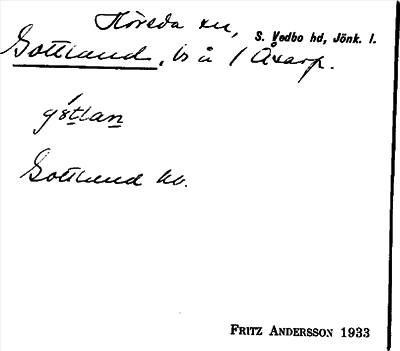 Höreda sn, S. Vedbo hd, Jönk. l.
Gottland, bs å 1 Åkarp.
gòtlan
Gottland kb.
FRITZ ANDERSSON 1933